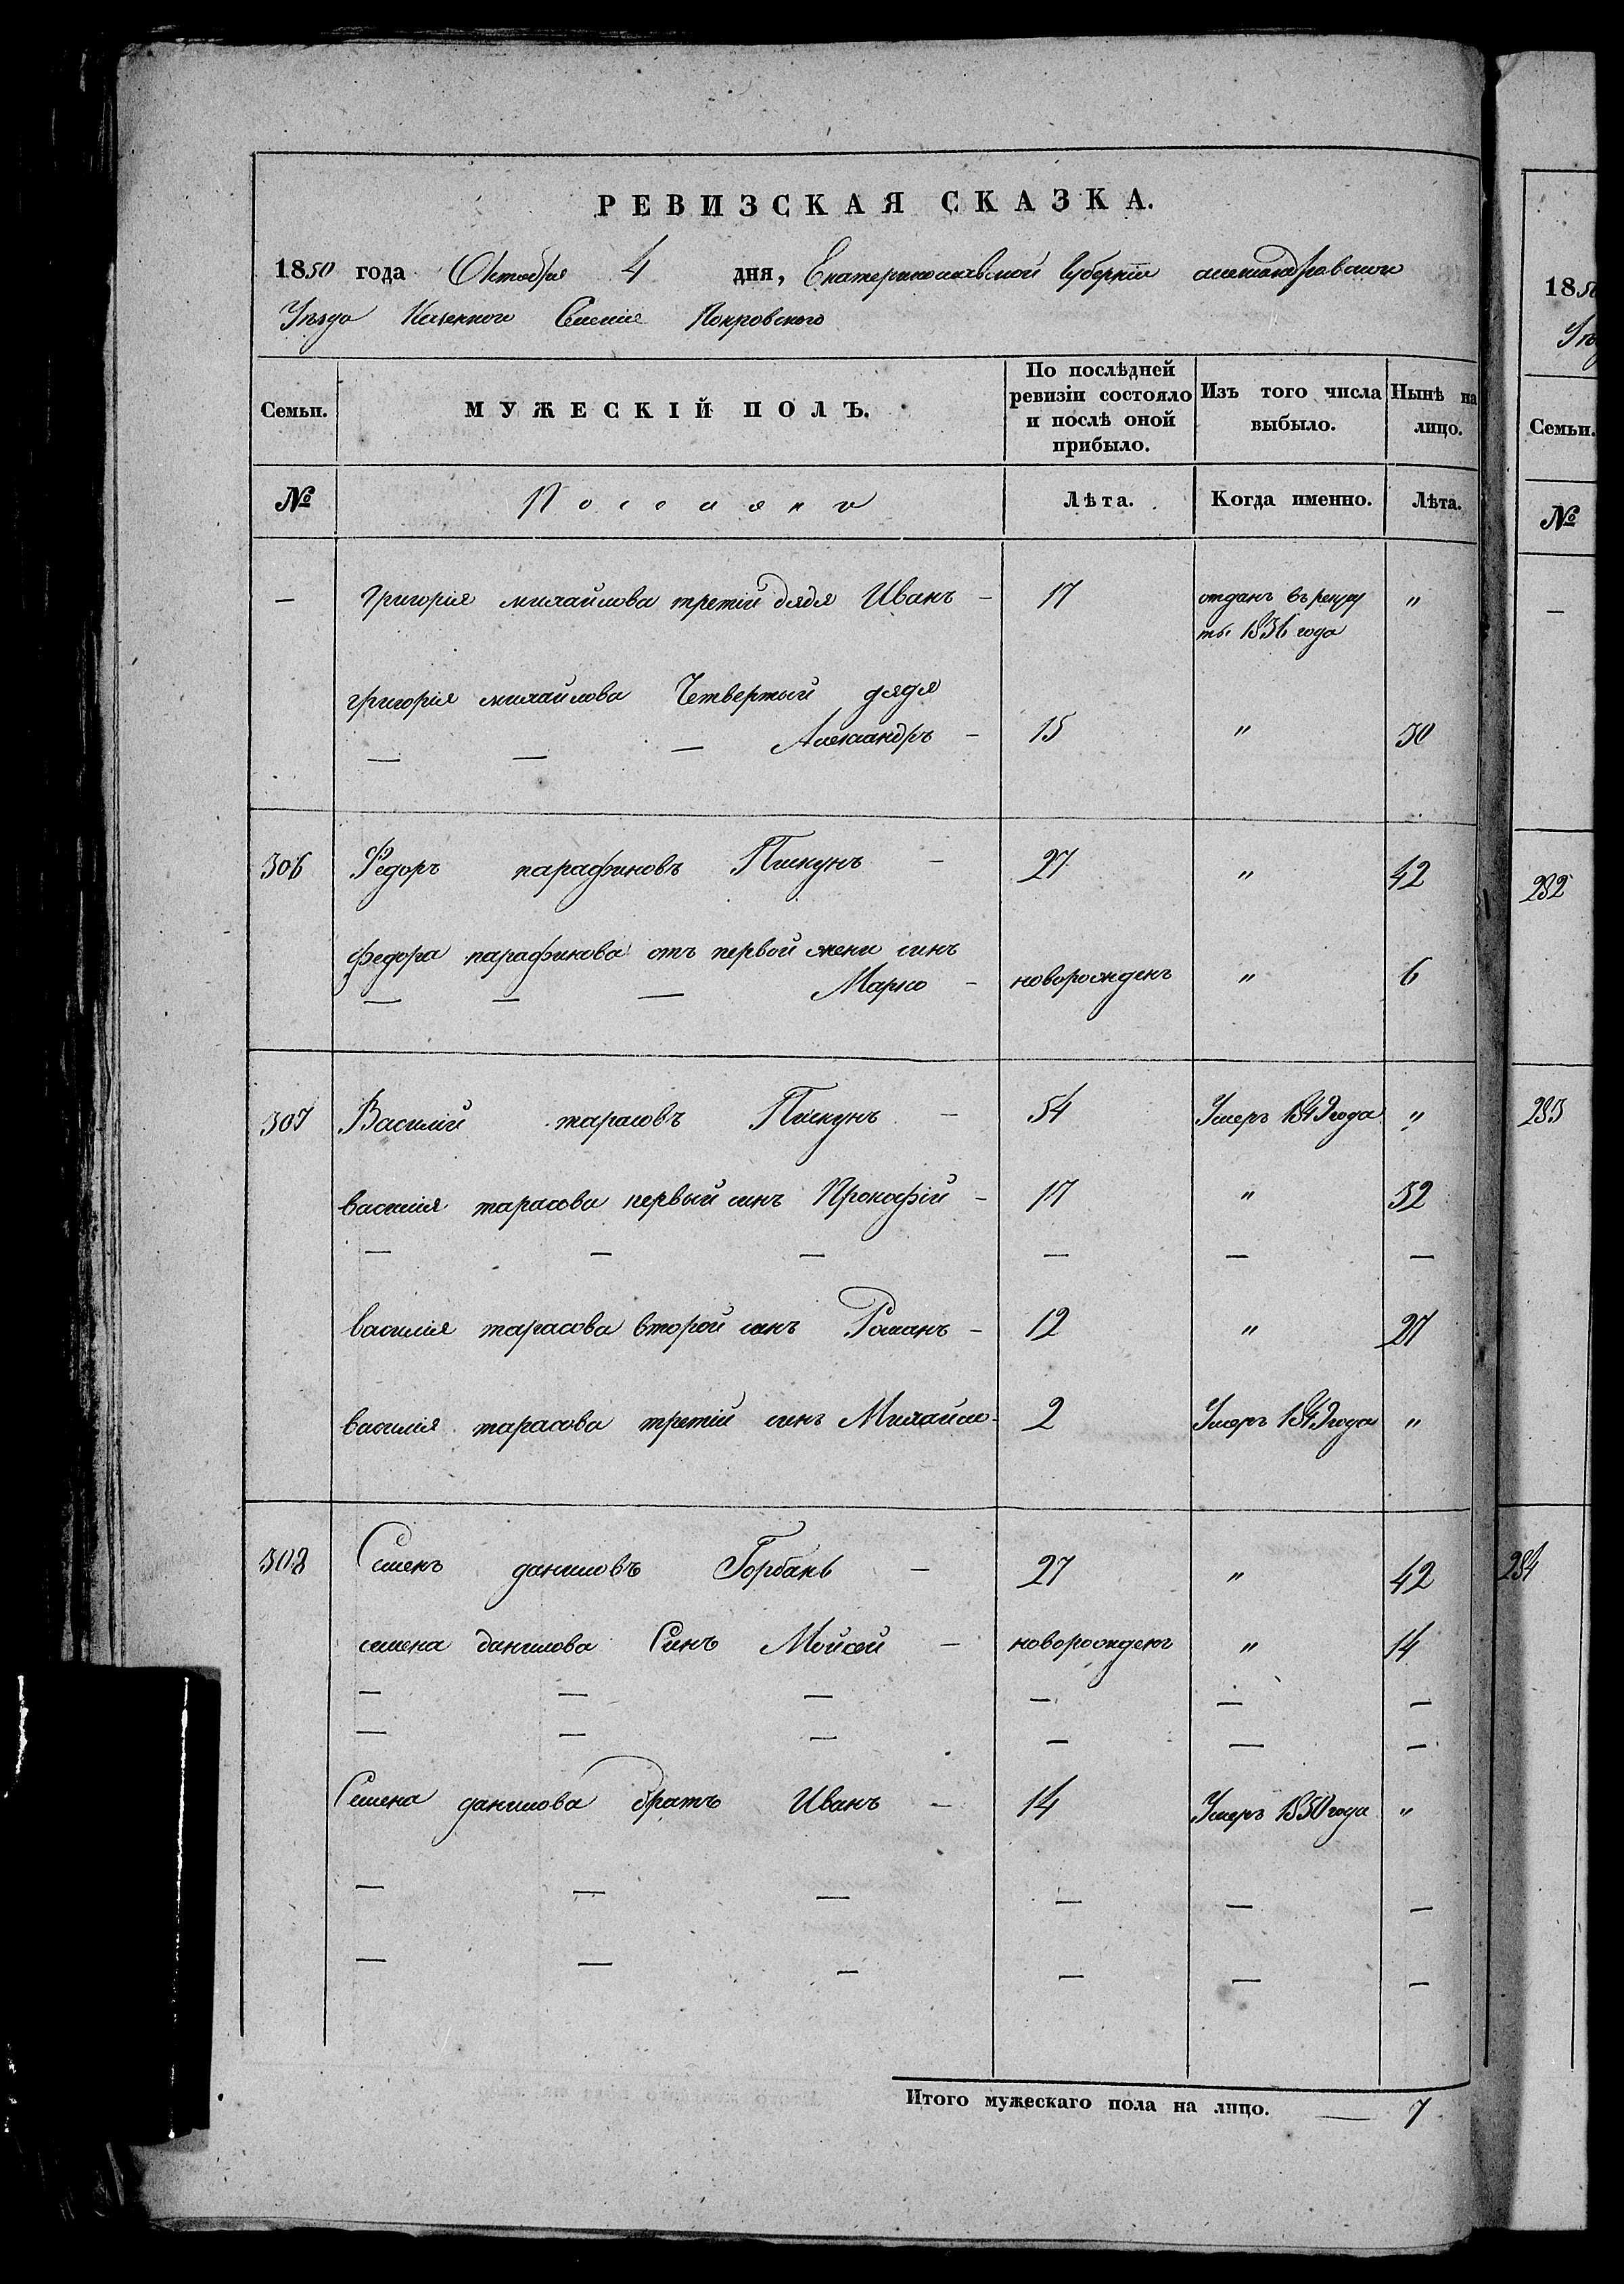 РЕВИЗСКАЯ СКАЗКА.
1850 года Октября 4 дня, Екатеринославской Губерніи александровскаго
Уезда Казенного Селенія Покровского
Семьи. МУЖЕСКІЙ ПОЛЪ. По послѣдней ревизіи состояло и послѣ оной прибыло. Изъ того числа выбыло. Нынѣ на лицо.
№ Поселяни Лѣта. Когда именно. Лѣта.
— григорія михайлова третій дядя Иванъ — 17 отданъ въ рекру "
ты 1836 года
григорія михайлова Четвертый дядя
— — — Александръ — 15 " 30
306 Федоръ парафиновъ Пискунъ — 27 " 42
федора парафинова отъ первой жени синъ
— — — Марко — новорожденъ " 6
307 Василій тарасовъ Пискунъ — 54 Умеръ 1849 года "
василія тарасова первый синъ Прокофій — 17 " 32
— — — — — —
василія тарасова второй синъ Романъ — 12 " 27
василія тарасова третій синъ Михайло — 2 Умеръ 1849 года "
308 Семенъ даниловъ Горбань — 27 " 42
семена данилова Синъ Мойсей — новорожденъ " 14
— — — — — —
— — — — — —
Семена данилова братъ Иванъ — 14 Умеръ 1850 года "
— — — — — —
— — — — — —
Итого мужескаго пола на лицо. — 7
1850
Семьи.
№
—
282
283
284